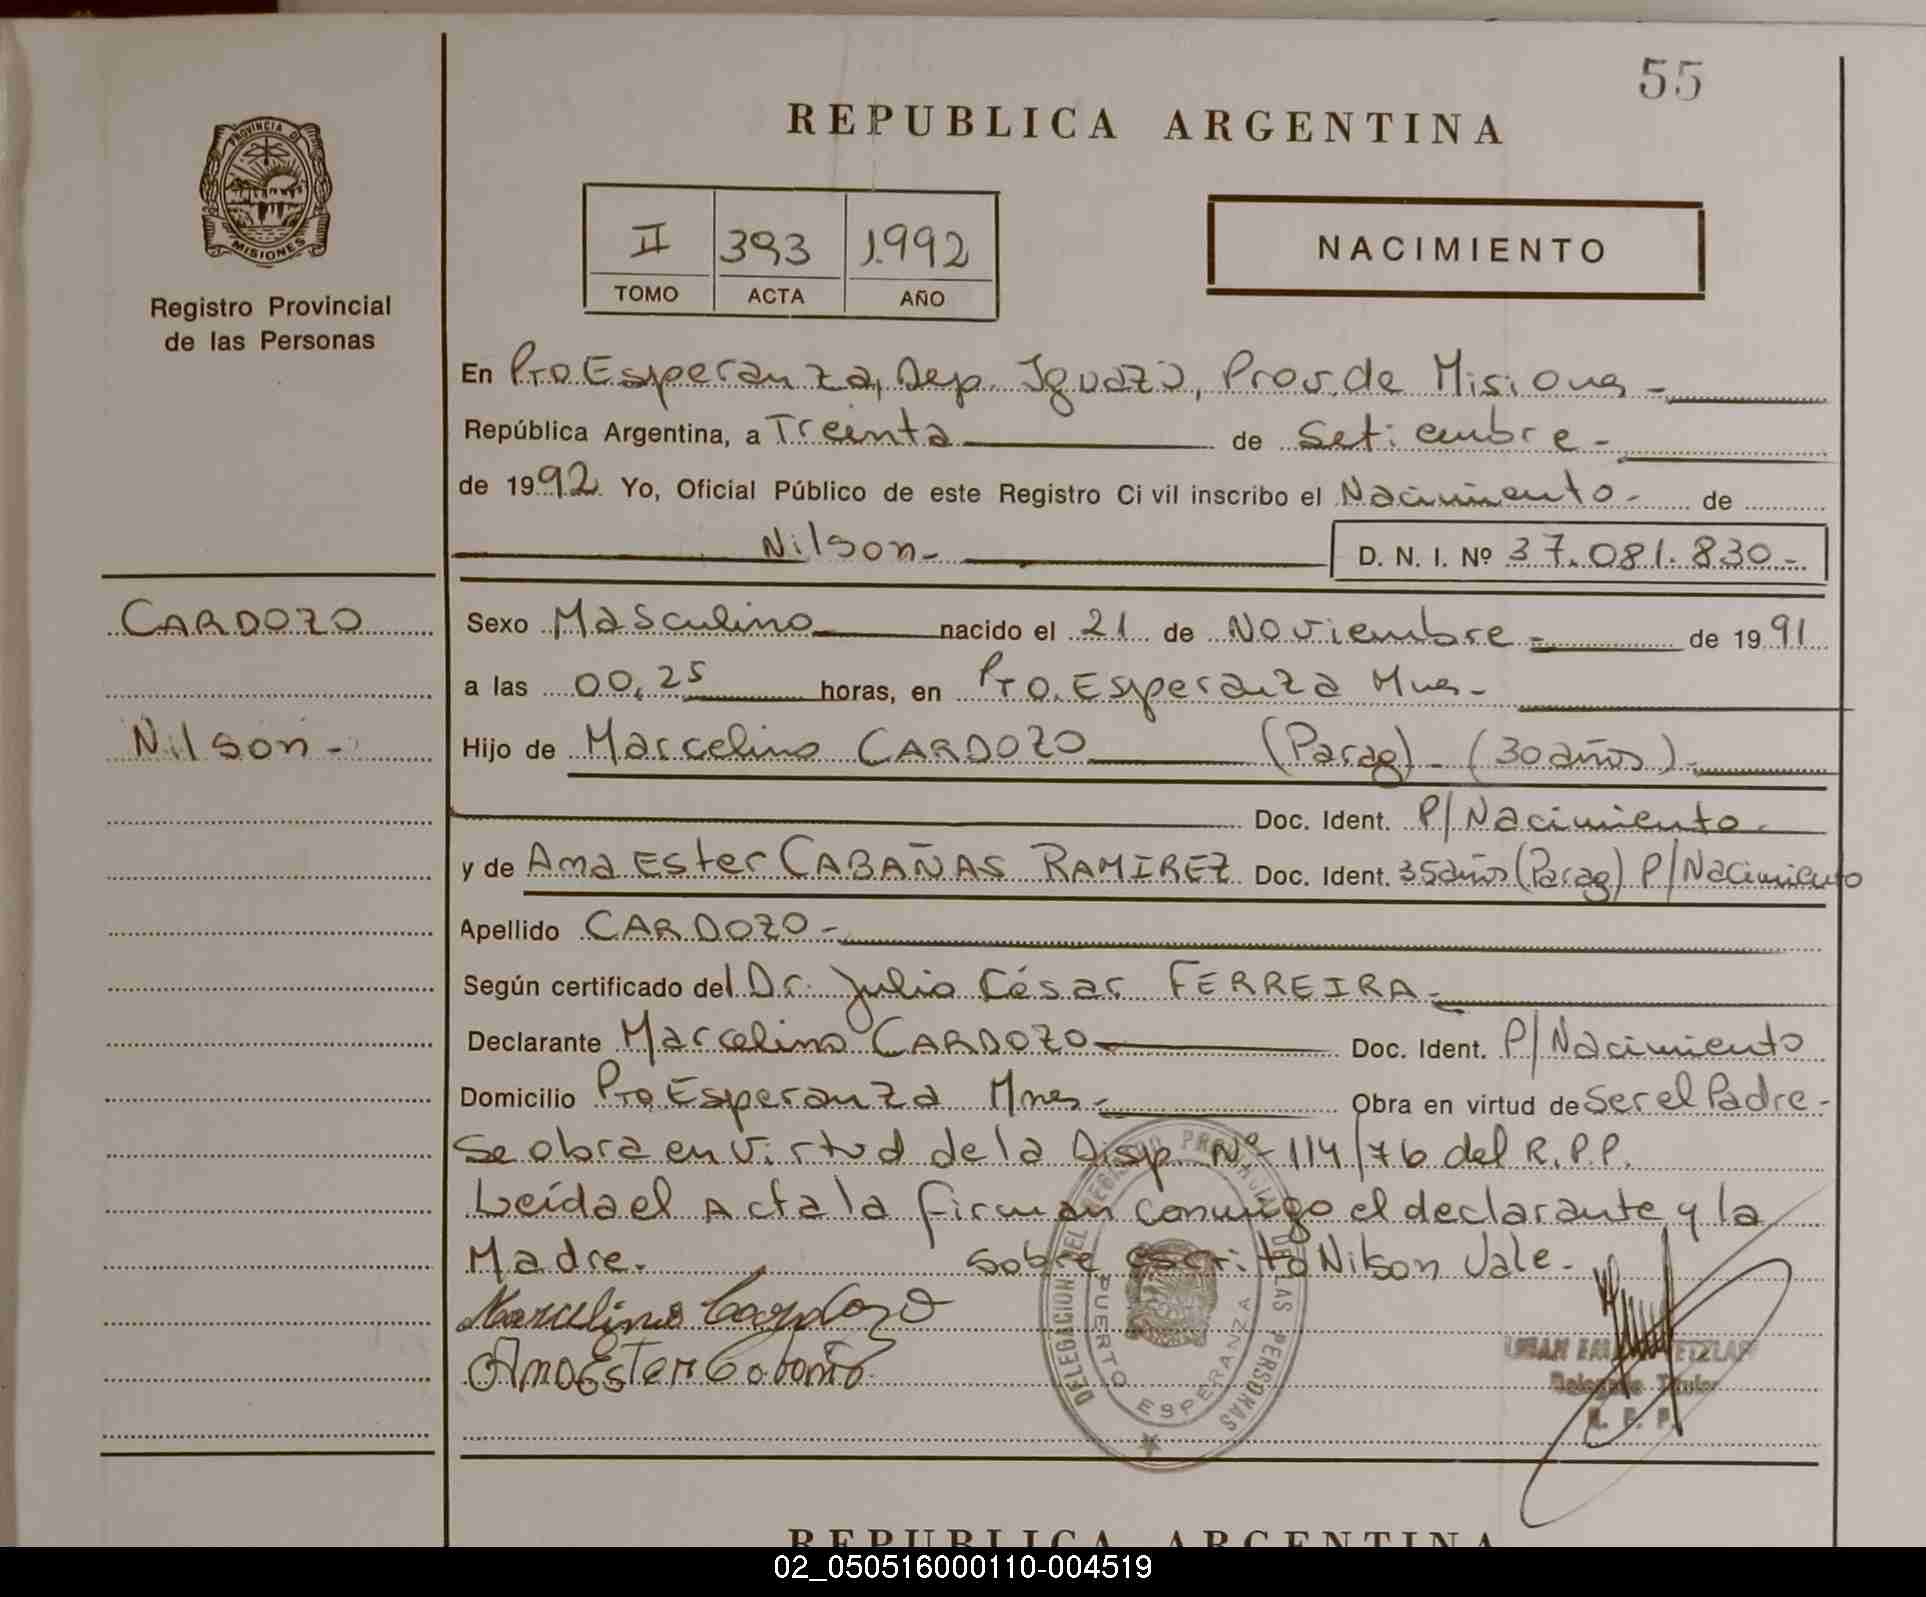 55
REPUBLICA ARGENTINA
PROVINCIA DE
MISIONES
Registro Provincial
de las Personas
II 393 1.992
TOMO ACTA AÑO
NACIMIENTO
En Pto Esperanza, Dep. Iguazú, Prov. de Misiones -
República Argentina, a Treinta de Setiembre -
de 1992. Yo, Oficial Público de este Registro Civil inscribo el Nacimiento - de
Nilson - D. N. I. Nº 37.081.830 -
CARDOZO
Nilson -
Sexo Masculino nacido el 21 de Noviembre - de 1991
a las 00,25 horas, en Pto. Esperanza Mnes -
Hijo de Marcelino CARDOZO (Parag) - (30 años) -
Doc. Ident. P/Nacimiento -
y de Ana Ester CABAÑAS RAMIREZ Doc. Ident. 35 años (Parag) P/Nacimiento
Apellido CARDOZO -
Según certificado del Dr. Julio César FERREIRA -
Declarante Marcelino CARDOZO Doc. Ident. P/Nacimiento
Domicilio Pto Esperanza Mnes - Obra en virtud de Ser el Padre -
Se obra en virtud de la Disp. Nº 114/76 del R.P.P.
Leída el Acta la firman conmigo el declarante y la
Madre. Sobre escrito Nilson Vale -
Marcelino Cardozo
Ana Ester Cabaña
DELEGACION DEL REGISTRO PROVINCIAL DE LAS PERSONAS
PUERTO ESPERANZA
Delegado Titular
R. P. P.
REPUBLICA ARGENTINA
02_050516000110-004519